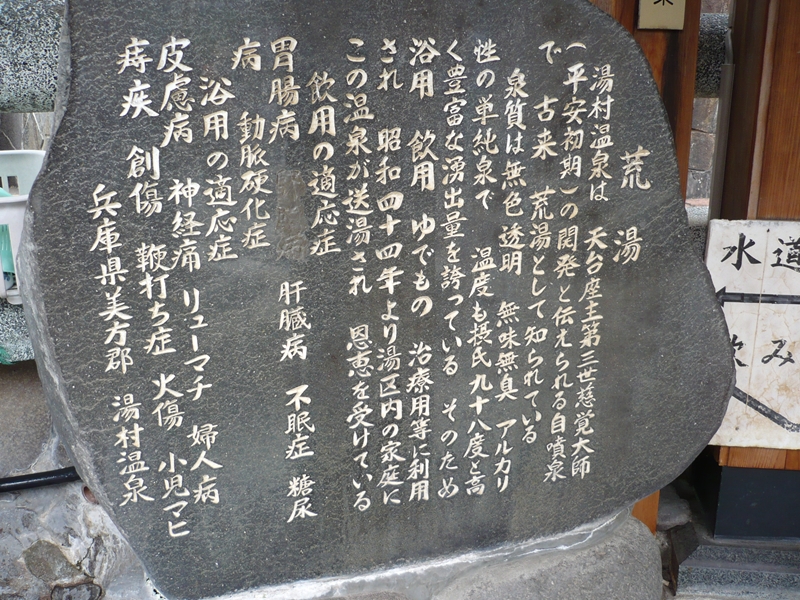 荒湯
湯村温泉は 天台座主第三世慈覚大師
(平安初期)の開発と伝えられる自噴泉
で 古来 荒湯として知られている
泉質は無色透明 無味無臭 アルカリ
性の単純泉で 温度も摂氏九十八度と高
く豊富な湧出量を誇っている そのため
浴用 飲用 ゆでもの 治療用等に利用
され 昭和四十四年より湯区内の家庭に
この温泉が送湯され 恩恵を受けている
飲用の適応症
胃腸病 肝臓病 不眠症 糖尿
病 動脈硬化症
浴用の適応症
皮慮病 神経痛 リューマチ 婦人病
痔疾 創傷 鞭打ち症 火傷 小児マヒ
兵庫県美方郡 湯村温泉
水道
飲み